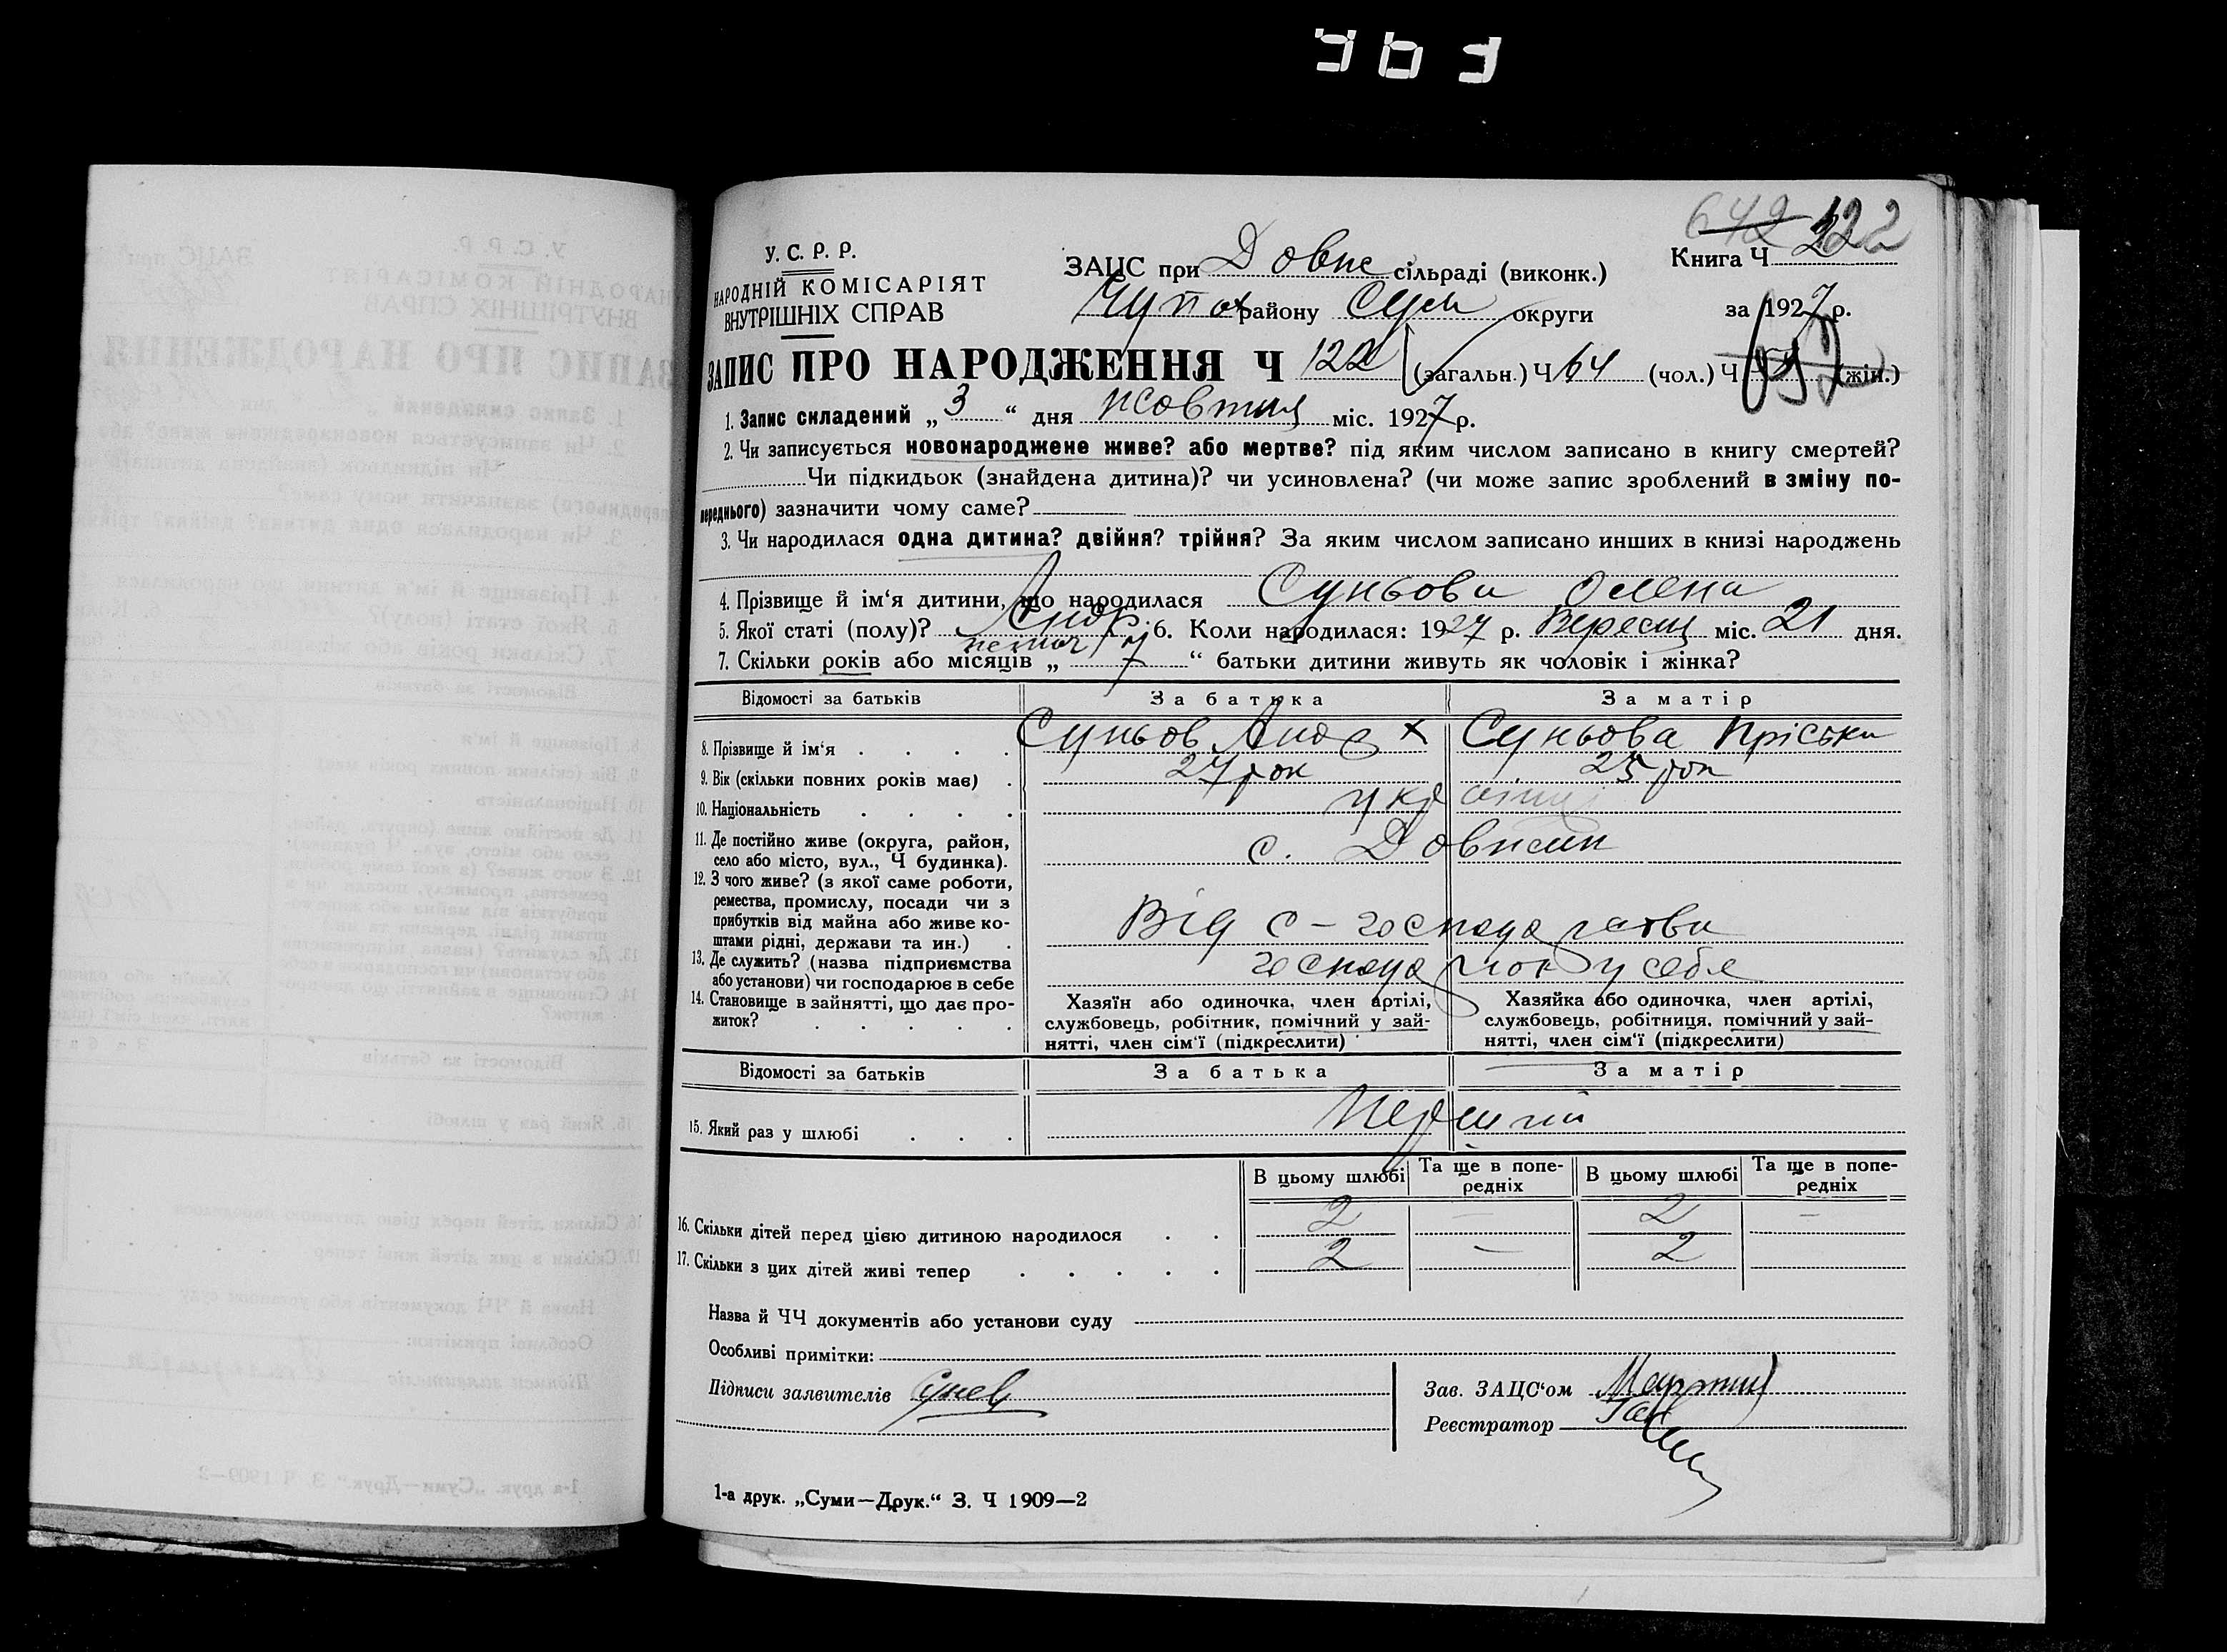 363
642 122
У. С. Р. Р.
НАРОДНІЙ КОМІСАРІЯТ
ВНУТРІШНІХ СПРАВ
ЗАЦС при Довж сільраді (виконк.)
Книга Ч
району Сум округи
за 1927 р.
ЗАПИС ПРО НАРОДЖЕННЯ Ч 122 (загальн.) Ч 64 (чол.) Ч (жін.)
1. Запис складений „ 3 “ дня жовтня міс. 1927 р.
2. Чи записується новонароджене живе? або мертве? під яким числом записано в книгу смертей?
Чи підкидьок (знайдена дитина)? чи усиновлена? (чи може запис зроблений в зміну по-
переднього) зазначити чому саме?
3. Чи народилася одна дитина? двійня? трійня? За яким числом записано инших в книзі народжень
4. Прізвище й ім‘я дитини, що народилася Суньова Олена
Андр.
5. Якої статі (полу)? жіноч 6. Коли народилася: 1927 р. Вересня міс. 21 дня.
7. Скільки років або місяців „ 7 “ батьки дитини живуть як чоловік і жінка?
Відомості за батьків За батька За матір
8. Прізвище й ім‘я Суньов Анд Суньова Пріська
9. Вік (скільки повних років має) 27 рок 25 рок
10. Національність україн
11. Де постійно живе (округа, район,
село або місто, вул., Ч будинка). с. Довжик
12. З чого живе? (з якої саме роботи,
ремества, промислу, посади чи з
прибутків від майна або живе ко-
штами рідні, держави та ин.) Від с-господарства
13. Де служить? (назва підприємства
або установи) чи господарює в себе у себе
14. Становище в зайнятті, що дає про-
житок?
Хазяїн або одиночка, член артілі,
службовець, робітник, помічний у зай-
нятті, член сім‘ї (підкреслити)
Хазяйка або одиночка, член артілі,
службовець, робітниця, помічний у зай-
нятті, член сім‘ї (підкреслити)
Відомості за батьків За батька За матір
15. Який раз у шлюбі Перший
В цьому шлюбі Та ще в попе-
редніх В цьому шлюбі Та ще в попе-
редніх
16. Скільки дітей перед цією дитиною народилося 2 — 2 —
17. Скільки з цих дітей живі тепер 2 — 2
Назва й ЧЧ документів або установи суду
Особливі примітки:
Підписи заявителів Сунев
Зав. ЗАЦС‘ом
Реєстратор
1-а друк. „Суми—Друк.“ З. Ч 1909—2